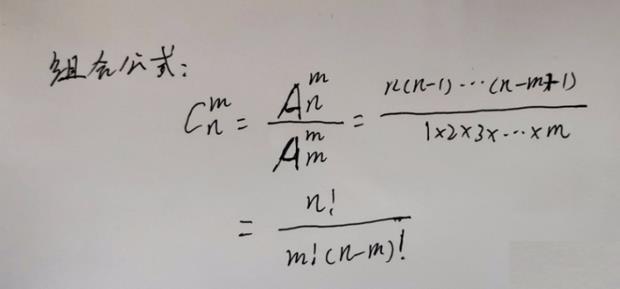 组合公式:
C_n^m = A_n^m / A_m^m = n(n-1)···(n-m+1) / 1×2×3×···×m
= n! / m!(n-m)!